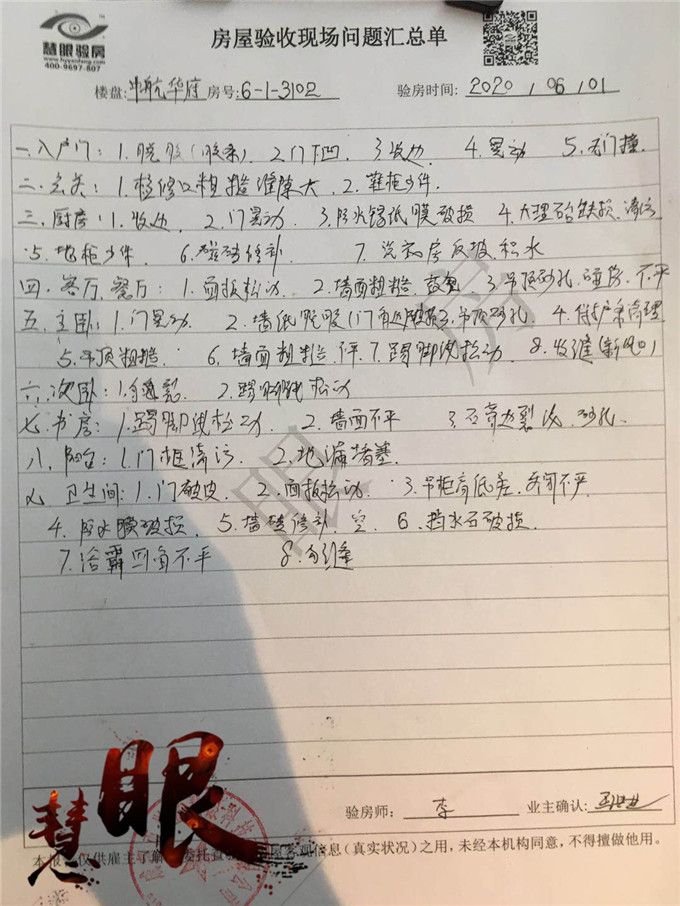 慧眼验房
www.hyyanfang.com
400-9697-807
房屋验收现场问题汇总单
楼盘: 中航华府 房号: 6-1-3102 验房时间: 2020 / 06 / 01
一.入户门: 1.脱胶(胶条) 2.门下凹 3.收边 4.晃动 5.无门撞.
二.玄关: 1.检修口粗糙缝隙大 2.鞋柜少件.
三.厨房: 1.收边 2.门晃动 3.防水锡纸膜破损 4.大理石台缺损.清污
5.地柜少件 6.磁砖修补 7. 房反坡.积水
四.客厅,餐厅: 1.面板松动 2.墙面粗糙. 3.吊顶砂孔. 不平
五.主卧: 1.门晃动 2.墙纸脱胶 3.吊顶砂孔 4.
5.吊顶粗糙 6.墙面粗糙. 7.踢脚线松动 8.收缝(新风口)
六.次卧: 1. 2.踢脚线松动
七.书房: 1.踢脚线松动 2.墙面不平 3. 裂 砂孔.
八.阳台: 1.门框清污 2.地漏堵塞.
九 卫生间: 1.门破皮 2.面板松动 3.吊柜高低差.关闭不严
4.防水膜破损. 5.墙砖修补.空 6.挡水石破损.
7.浴霸四角不平 8.勾缝
眼 房
验房师: 李 业主确认:
慧眼
仅供雇主了解 委托查 信息(真实状况)之用,未经本机构同意,不得擅做他用。